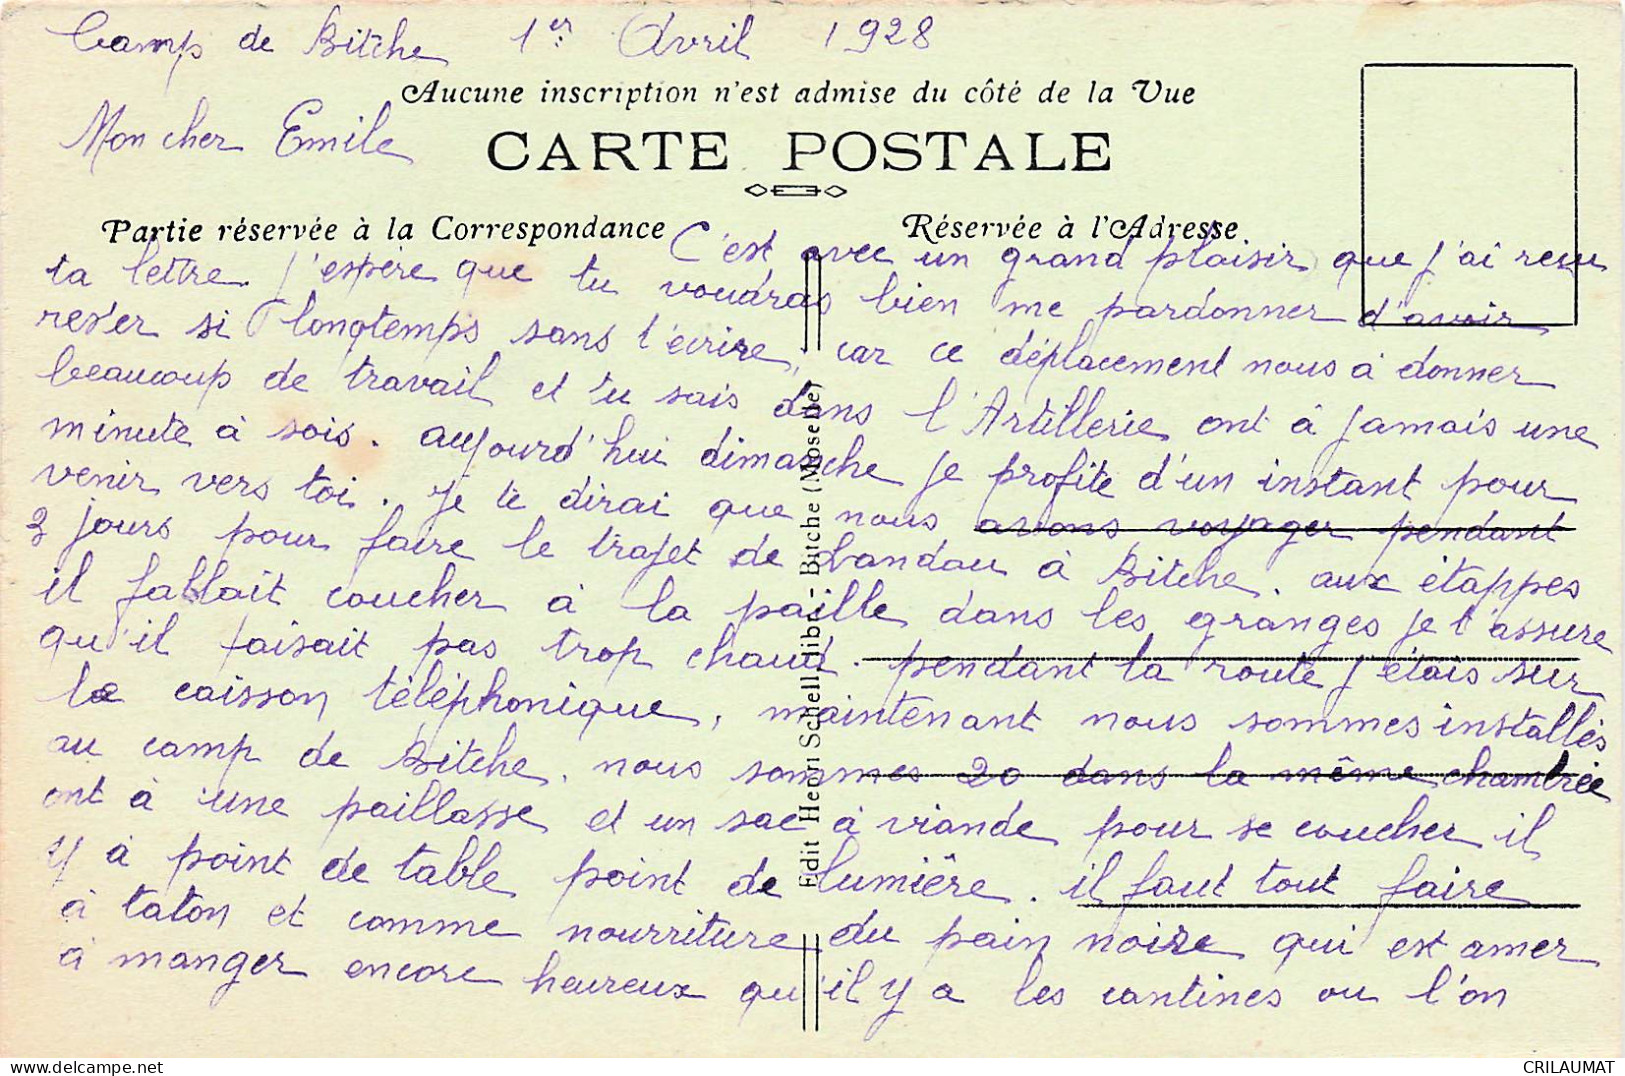 Camp de Bitche 1er Avril 1928
Aucune inscription n'est admise du côté de la Vue
Mon cher Emile
CARTE POSTALE
Partie réservée à la Correspondance
Réservée à l'Adresse
C'est avec un grand plaisir que j'ai reçu
ta lettre. j'espère que tu voudras bien me pardonner d'avoir
rester si longtemps sans t'écrire, car ce déplacement nous à donner
beaucoup de travail et tu sais dans l'Artillerie ont à jamais une
minute à sois. aujourd'hui dimanche je profite d'un instant pour
venir vers toi. Je te dirai que nous avons voyager pendant
3 jours pour faire le trajet de Landau à Bitche. aux étappes
il fallait coucher à la paille dans les granges je t'assure
qu'il faisait pas trop chaud. pendant la route j'étais sur
le caisson téléphonique, maintenant nous sommes installés
au camp de Bitche. nous sommes 20 dans la même chambrée
ont à une paillasse et un sac à viande pour se coucher il
y à point de table point de lumière. il faut tout faire
à taton et comme nourriture du pain noire qui est amer
à manger encore heureux qu'il y a les cantines ou l'on
Edit Henri Schell, libr. - Bitche (Moselle)
www.delcampe.net
CRILAUMAT